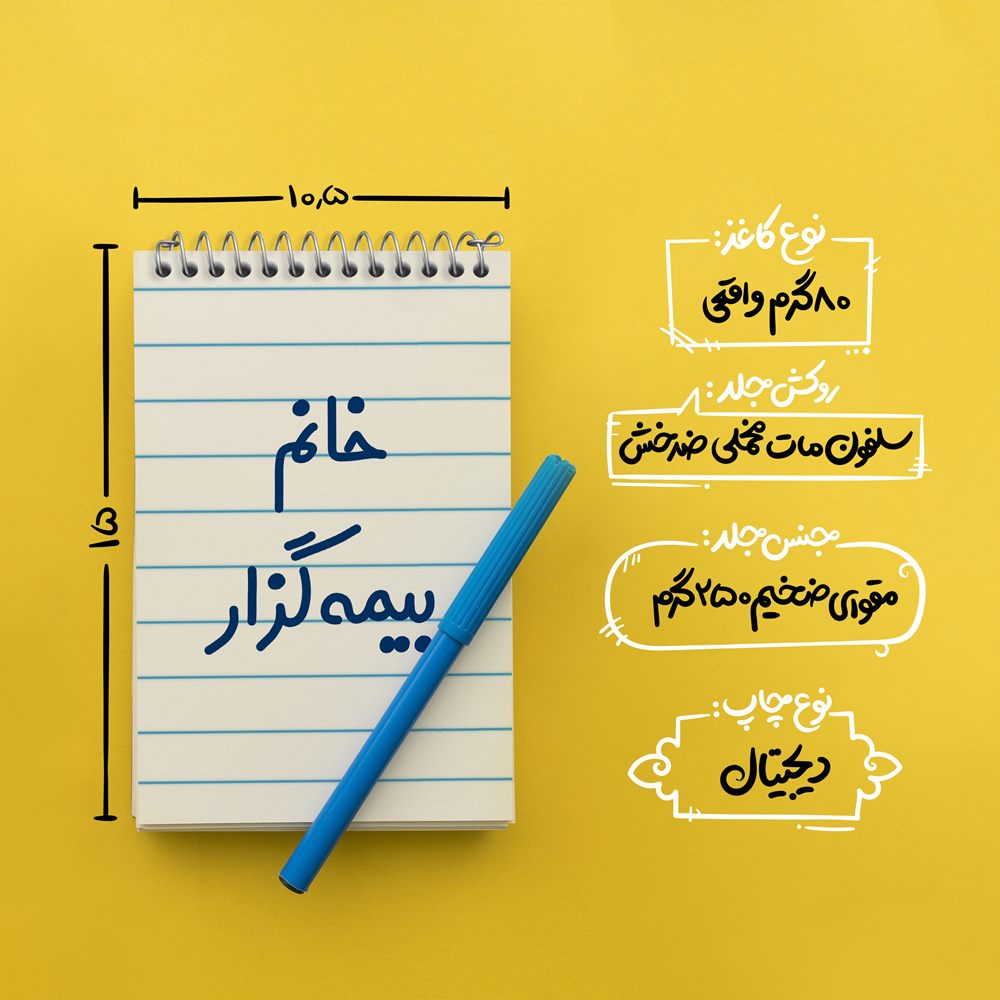 ۱۰٫۵
۱۵
خانم
بیمه‌گزار
نوع کاغذ:
۸۰ گرم واقعی
روکش جلد:
سلفون مات مخملی ضدخش
جنس جلد:
مقوای ضخیم ۲۵۰ گرم
نوع چاپ:
دیجیتال